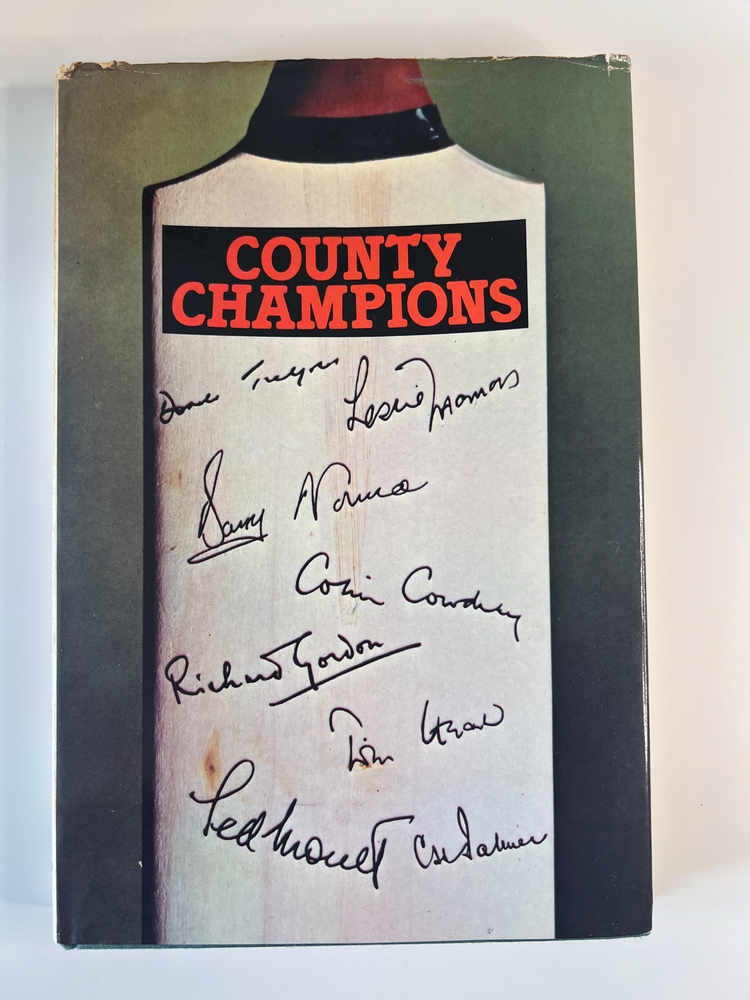 COUNTY
CHAMPIONS
Leslie Thomas
Barry Norman
Colin Cowdrey
Richard Gordon
Tim Heald
Ted Moult